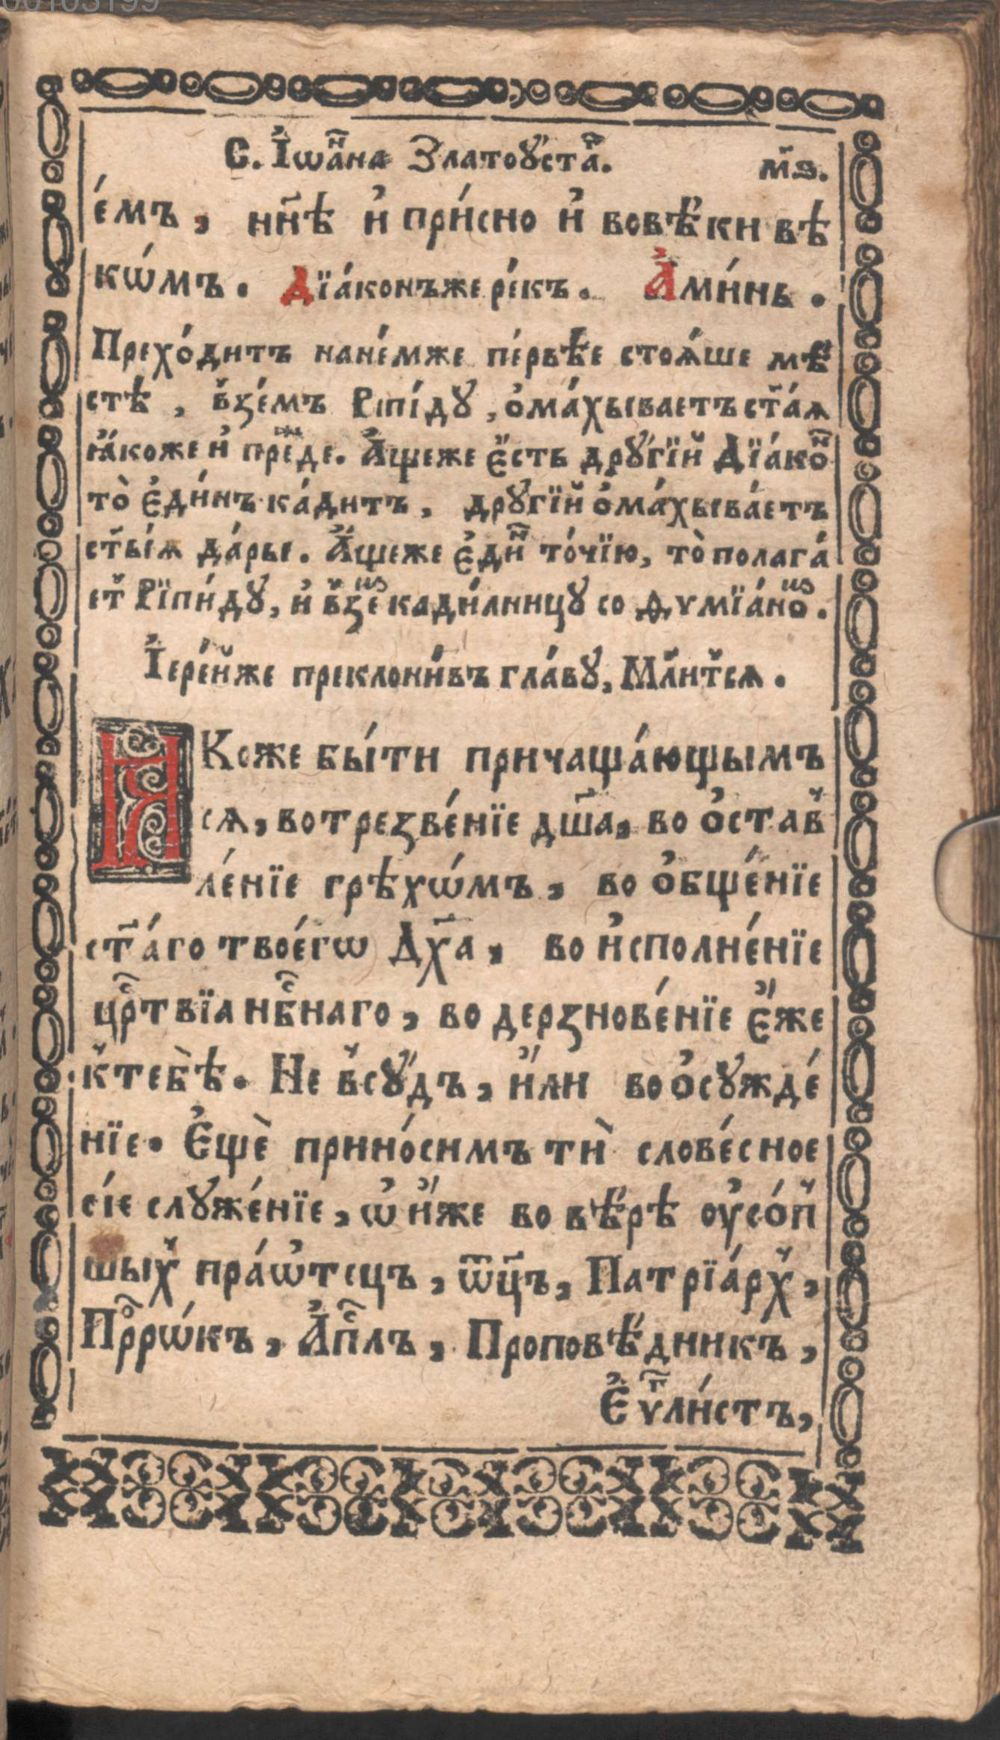 00103199
С. І҆ѡа҃нна Златоꙋста҃. м҃ѕ.
е́мъ, нн҃ѣ и҆ при́сно и҆ вовѣ́ки вѣ́
кѡ́мъ. Дїа́конъже ре́къ. А҆ми́нь.
Прехо́дитъ нане́мже пе́рвѣе стоѧ́ше мѣ́
стѣ, взе́мъ Рипі́дꙋ, ѡ҆ма́хываетъ ст҃а́ѧ
ꙗ҆́коже и҆ пре́жде. А҆́щеже є҆́сть дрꙋгі́й Дїа́конъ
то̀ є҆ди́нъ ка́дитъ, дрꙋгі́й ѡ҆ма́хыва́етъ
ст҃ы́ѧ да́ры. А҆́щеже є҆ди́нъ то́чїю, то̀ полага́
етъ Рїпи́дꙋ, и҆ взе́мъ кади́лницꙋ со ѳѷмїа́номъ.
І҆ере́йже преклони́въ гла́вꙋ, Мл҃и́тсѧ.
Ꙗ҆Коже бы́ти причаща́ющымъ
сѧ, вотрезве́нїе дш҃а, во ѡ҆ста́в
ле́нїе грѣхѡ́мъ, во ѻ҆бще́нїе
ст҃а́го твоегѡ̀ Дх҃а, во и҆сполне́нїе
цр҃твїа нб҃наго, во дерзнове́нїе є҆́же
ктебѣ̀. Не всꙋ́дъ, и҆лѝ во ѡ҆сꙋжде́
нїе. Є҆щѐ прино́симъ тѝ слове́сное
сіе слꙋже́нїе, ѡ҆ и҆́же во вѣ́рѣ ѹ҆со́п
шыхъ пра́ѻтецъ, ѿц҃ъ, Патрїа́рхъ,
Прⷪ҇рѡ́къ, А҆пⷭ҇лъ, Проповѣ́дникъ,
Є҆ѵⷢ҇ли́стъ,